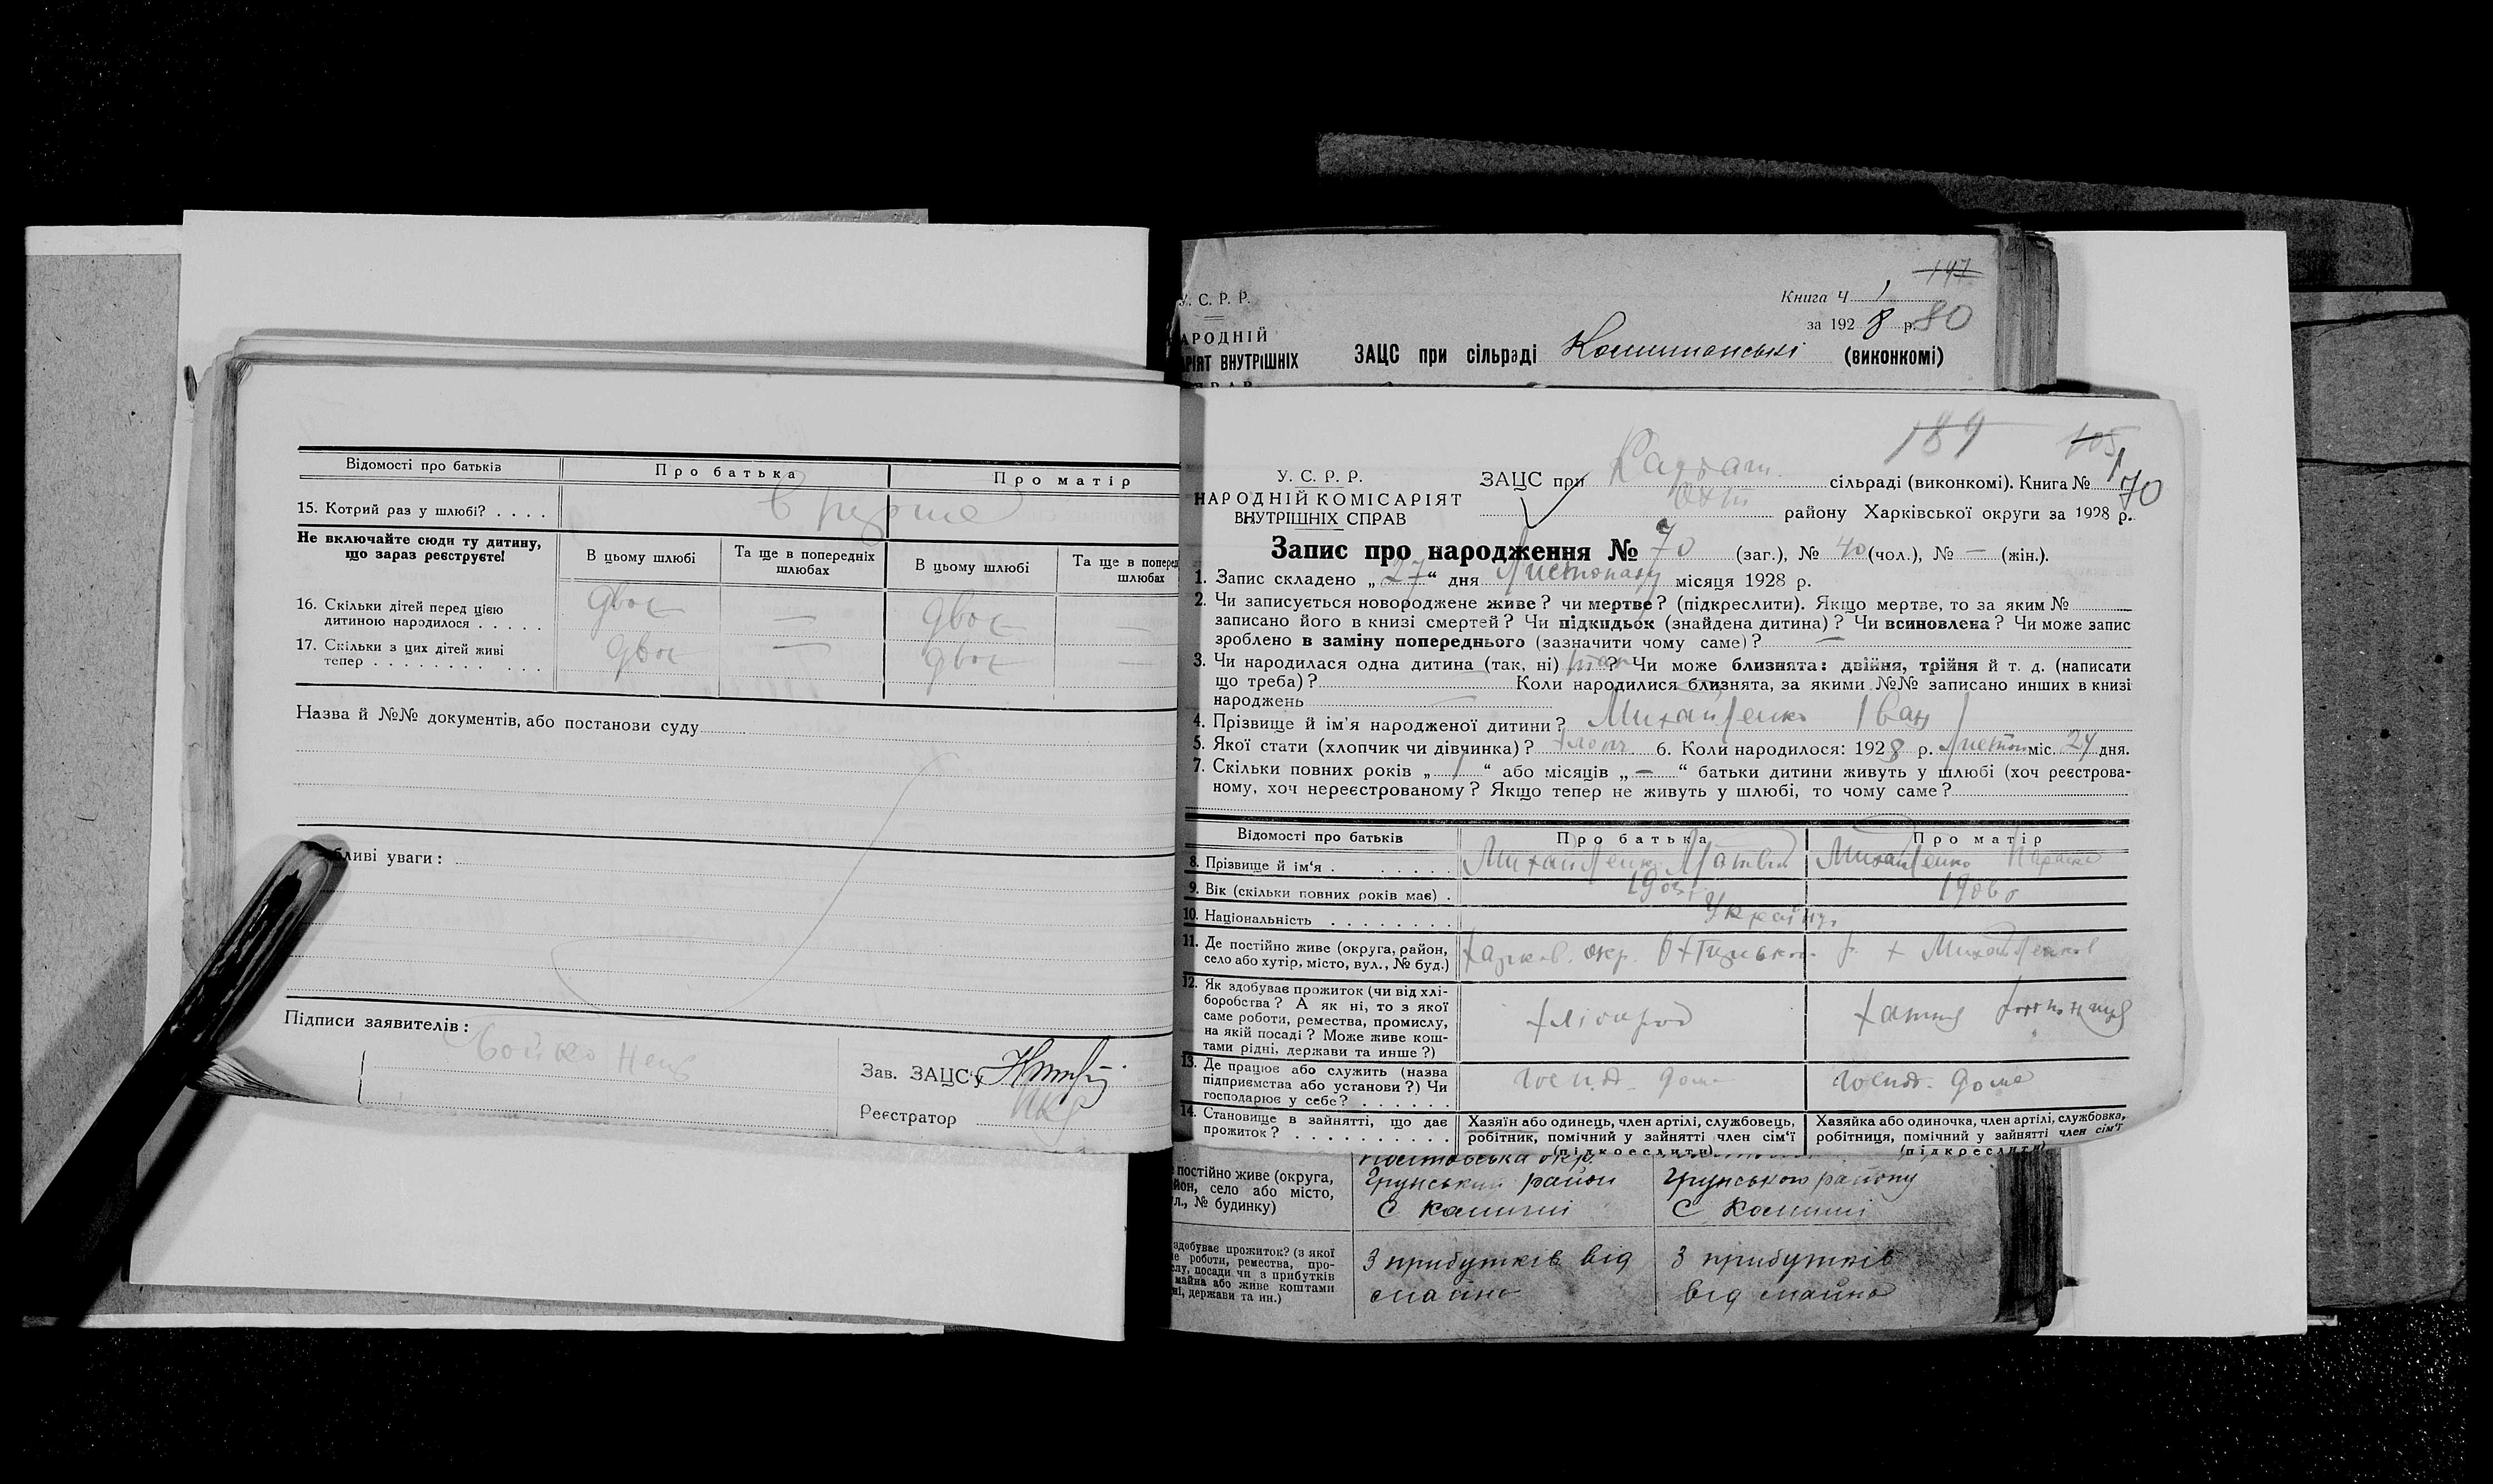 Відомості про батьків
Про батька
Про матір
15. Котрий раз у шлюбі? . . . .
Не включайте сюди ту дитину,
що зараз реєструєте!
В цьому шлюбі
Та ще в попередніх
шлюбах
В цьому шлюбі
Та ще в поперед
шлюбах
16. Скільки дітей перед цією
дитиною народилося . . . . .
двоє — двоє —
17. Скільки з цих дітей живі
тепер . . . . . . . . . . .
двоє — двоє —
Назва й №№ документів, або постанови суду
бливі уваги:
Підписи заявителів:
Бойко
Зав. ЗАЦС'у
Реєстратор
У. С. Р. Р.
Книга Ч 1
147
за 1928 р. 80
АРОДНІЙ
РІЯТ ВНУТРІШНІХ
ЗАЦС при сільраді (виконкомі)
189 105
У. С. Р. Р.
НАРОДНІЙ КОМІСАРІЯТ
ВНУТРІШНІХ СПРАВ
ЗАЦС при сільраді (виконкомі). Книга № 1
70
Охт району Харківської округи за 1928 р.
Запис про народження № 70 (заг.), № 40 (чол.), № — (жін.).
1. Запис складено „27“ дня Листопаду місяця 1928 р.
2. Чи записується новороджене живе? чи мертве? (підкреслити). Якщо мертве, то за яким №
записано його в книзі смертей? Чи підкидьок (знайдена дитина)? Чи всиновлена? Чи може запис
зроблено в заміну попереднього (зазначити чому саме)? —
3. Чи народилася одна дитина (так, ні) так? Чи може близнята: двійня, трійня й т. д. (написати
що треба)? Коли народилися близнята, за якими №№ записано инших в книзі
народжень —
4. Прізвище й ім'я народженої дитини? Михайленко Іван
5. Якої стати (хлопчик чи дівчинка)? хлопч 6. Коли народилося: 1928 р. Листоп міс. 24 дня.
7. Скільки повних років „ “ або місяців „—“ батьки дитини живуть у шлюбі (хоч реєстрова-
ному, хоч нереєстрованому? Якщо тепер не живуть у шлюбі, то чому саме?
Відомості про батьків
Про батька
Про матір
8. Прізвище й ім'я . . . . . .
Михайленко Матвій
Михайленко Параска
9. Вік (скільки повних років має) .
1906
10. Національність . . . . . . . .
Україн
11. Де постійно живе (округа, район,
село або хутір, місто, вул., № буд.)
Харков. окр. Охтирськ. р. х Михайленків
12. Як здобуває прожиток (чи від хлі-
боробства? А як ні, то з якої
саме роботи, ремества, промислу,
на якій посаді? Може живе кош-
тами рідні, держави та инше?)
хлібороб
хатня
13. Де працює або служить (назва
підприємства або установи?) Чи
господарює у себе? . . . . . .
госпд. дома
госпд. дома
14. Становище в зайнятті, що дає
прожиток? . . . . . . . . . .
Хазяїн або одинець, член артілі, службовець,
робітник, помічний у зайнятті член сім'ї
(підкреслити)
Хазяйка або одиночка, член артілі, службовка,
робітниця, помічний у зайнятті член сім'ї
(підкреслити)
постійно живе (округа,
йон, село або місто,
л., № будинку)
Грунський район
Грунського району
здобуває прожиток? (з якої
е роботи, ремества, про-
слу, посади чи з прибутків
майна або живе коштами
ні, держави та ин.)
З прибутків від
майна
З прибутків
від майна